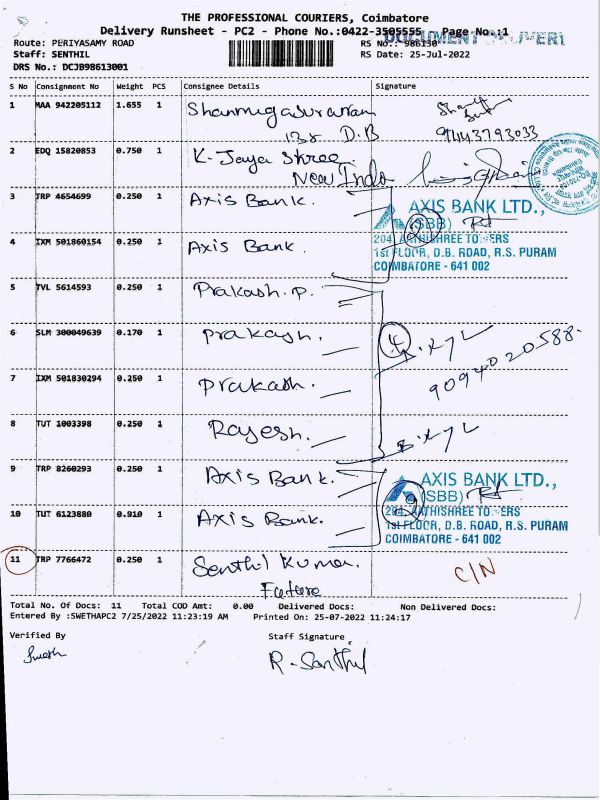 THE PROFESSIONAL COURIERS, Coimbatore
Delivery Runsheet - PC2 - Phone No.:0422-3505555 Page No.:1
DOCUMENT DELIVERY
Route: PERIYASAMY ROAD RS No.: 986130
Staff: SENTHIL RS Date: 25-Jul-2022
DRS No.: DCJB98613001
S No Consignment No Weight PCS Consignee Details Signature
1 MAA 942205112 1.655 1 Shanmugasundram
138 D.B 9443793033
2 EDQ 15820853 0.750 1 K. Jaya Shree
New Indo
3 TRP 4654699 0.250 1 Axis Bank. AXIS BANK LTD.,
(SBB)
2
4 IXM 501860154 0.250 1 Axis Bank. 204, AATHISHREE TOWERS
1st FLOOR, D.B. ROAD, R.S. PURAM
COIMBATORE - 641 002
5 TVL 5614593 0.250 1 Prakash. P.
6 SLM 300049639 0.170 1 Prakash. 4
9094020588.
7 IXM 501830294 0.250 1 Prakash.
8 TUT 1003398 0.250 1 Rajesh.
9 TRP 8260293 0.250 1 Axis Bank. AXIS BANK LTD.,
(SBB)
2
10 TUT 6123880 0.910 1 Axis Bank. 204, AATHISHREE TOWERS
1st FLOOR, D.B. ROAD, R.S. PURAM
COIMBATORE - 641 002
11 TRP 7766472 0.250 1 Senthil Kumar. C/N
Future
Total No. Of Docs: 11 Total COD Amt: 0.00 Delivered Docs: Non Delivered Docs:
Entered By :SWETHAPC2 7/25/2022 11:23:19 AM Printed On: 25-07-2022 11:24:17
Verified By Staff Signature
R. Santhil